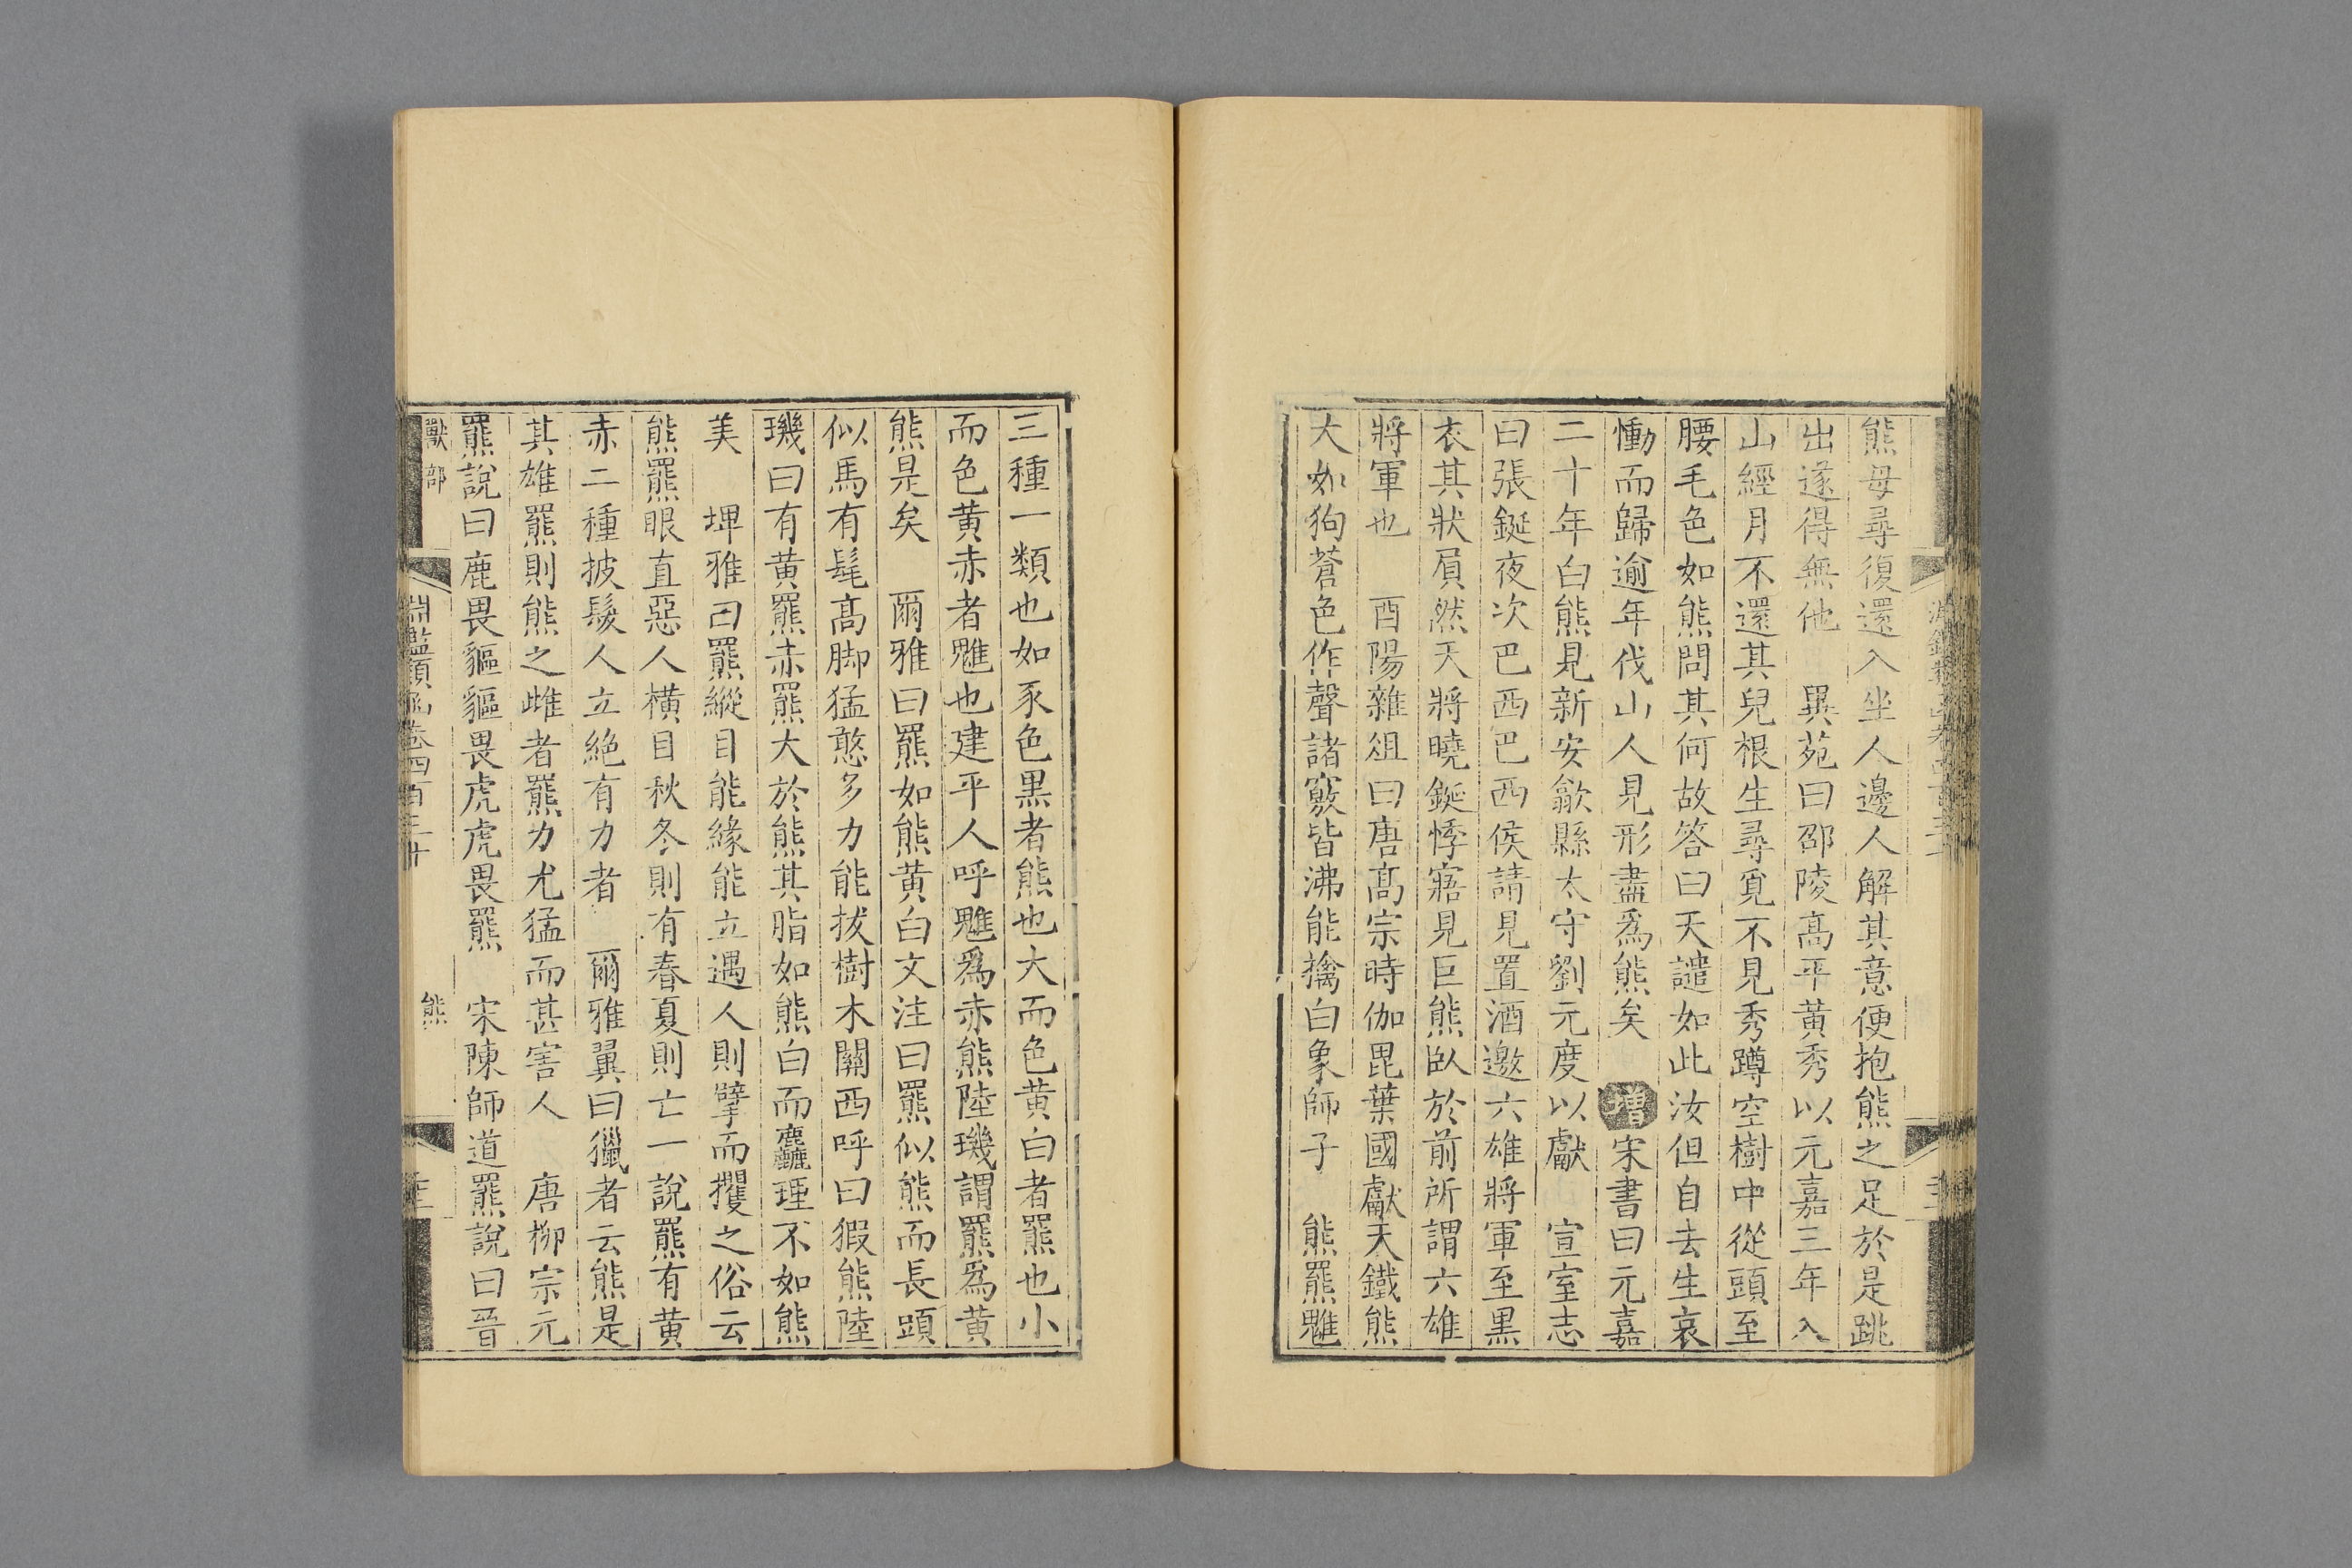 熊母尋復還入坐人邊人解其意便抱熊之足於是跳
出遂得無他　異苑曰邵陵高平黃秀以元嘉三年入
山經月不還其兒根生尋覓不見秀蹲空樹中從頭至
腰毛色如熊問其何故答曰天譴如此汝但自去生哀
慟而歸逾年伐山人見形盡爲熊矣　增宋書曰元嘉
二十年白熊見新安歙縣太守劉元度以獻　宣室志
曰張鋋夜次巴西巴西侯請見置酒邀六雄將軍至黑
衣其狀屓然天將曉鋋悸寤見巨熊臥於前所謂六雄
將軍也　酉陽雜俎曰唐高宗時伽毘葉國獻天鐵熊
大如狗蒼色作聲諸竅皆沸能擒白象師子　熊羆魋
三種一類也如豕色黒者熊也大而色黄白者羆也小
而色黄赤者魋也建平人呼魋爲赤熊陸璣謂羆爲黄
熊是矣　爾雅曰羆如熊黄白文注曰羆似熊而長頭
似馬有髦高脚猛憨多力能拔樹木關西呼曰猳熊陸
璣曰有黄羆赤羆大於熊其脂如熊白而麤理不如熊
美　埤雅曰羆縱目能緣能立遇人則擘而攫之俗云
熊羆眼直惡人横目秋冬則有春夏則亡一說羆有黄
赤二種披髮人立絶有力者　爾雅翼曰獵者云熊是
其雄羆則熊之雌者羆力尤猛而甚害人　唐柳宗元
羆說曰鹿畏貙貙畏虎虎畏羆　宋陳師道羆說曰晉
獸部
淵鑑類函卷四百三十
熊